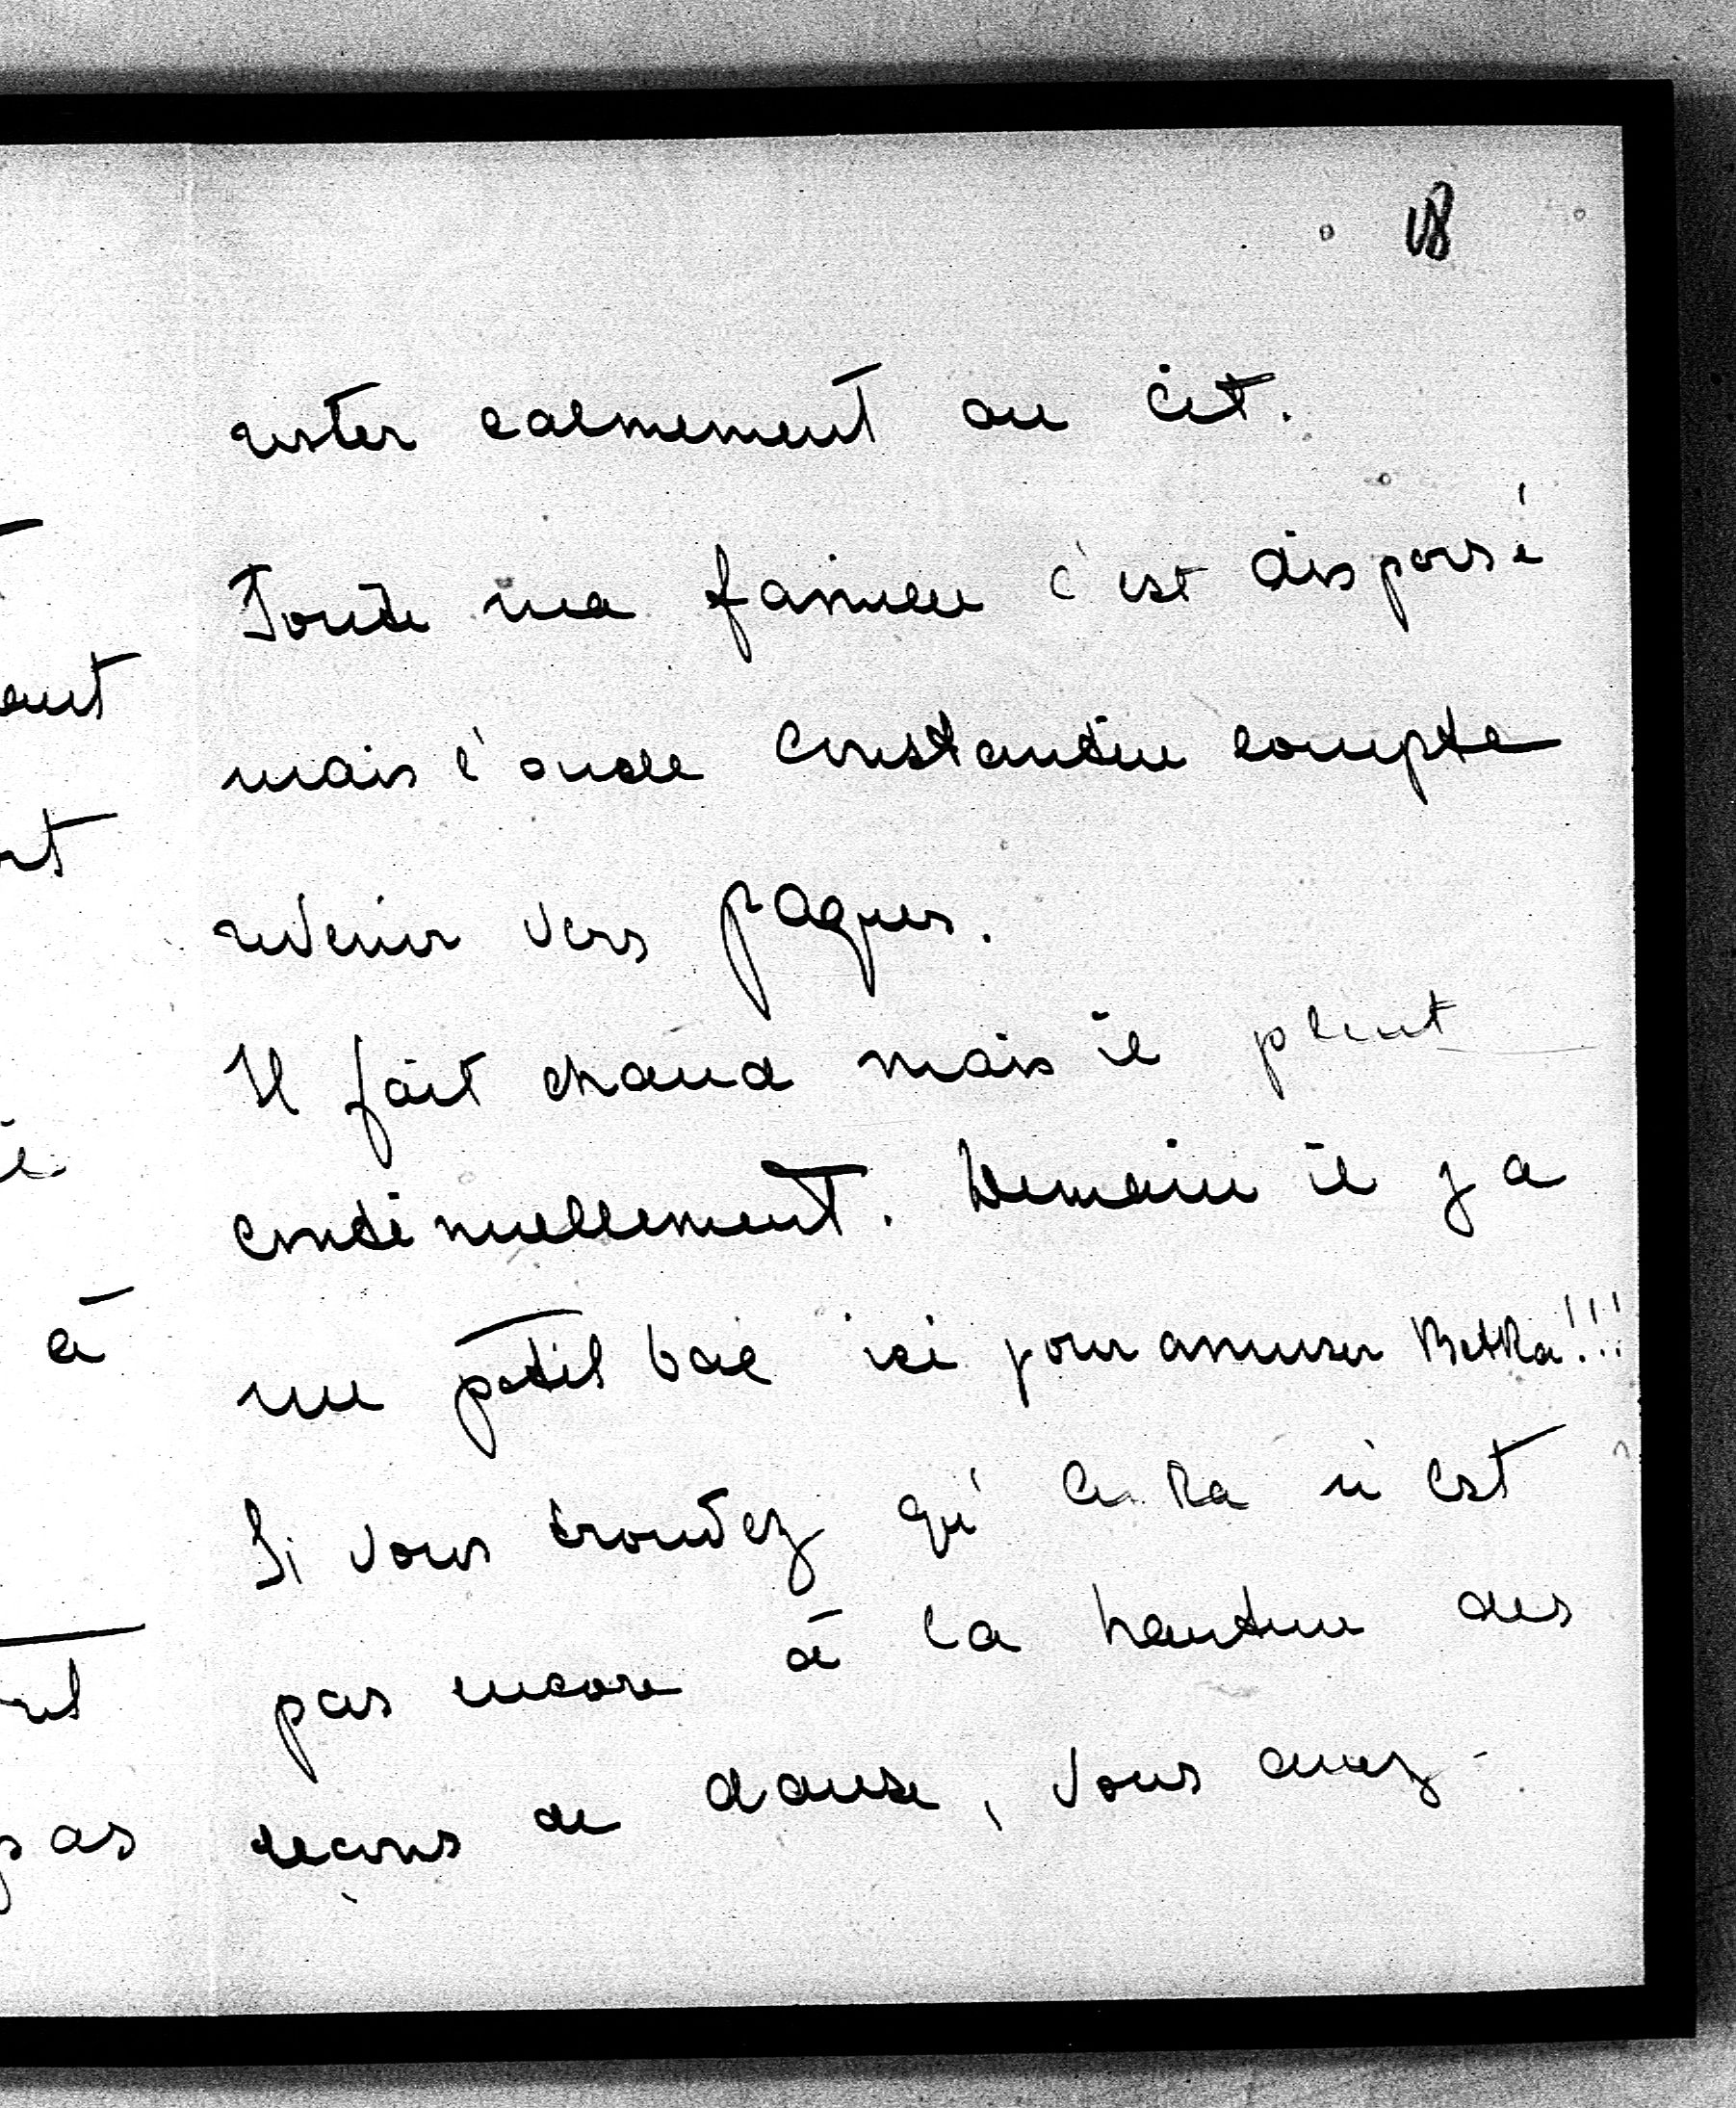 18
rester calmement au lit.
Toute ma famille c'est dispersé
mais l'oncle Constantin compte
revenir vers pâques.
Il fait chaud mais il pleut
continuellement. Demain il y a
un petit bal ici pour amuser Betka!!!
Si vous trouvez qu' n'est
pas encore à la hauteur des
leçons de danse, vous avez